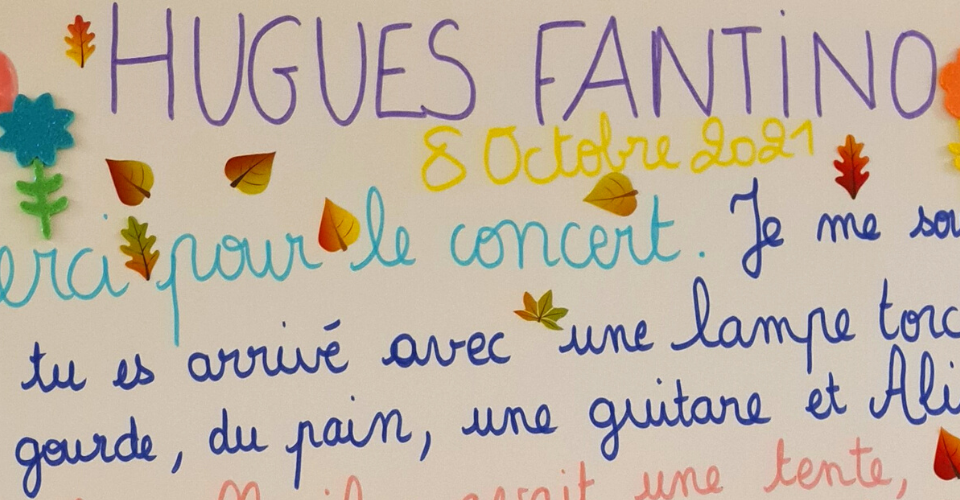 HUGUES FANTINO
8 Octobre 2021
erci pour le concert. Je me sou
tu es arrivé avec une lampe torc
gourde, du pain, une guitare et Ali
avait une tente,